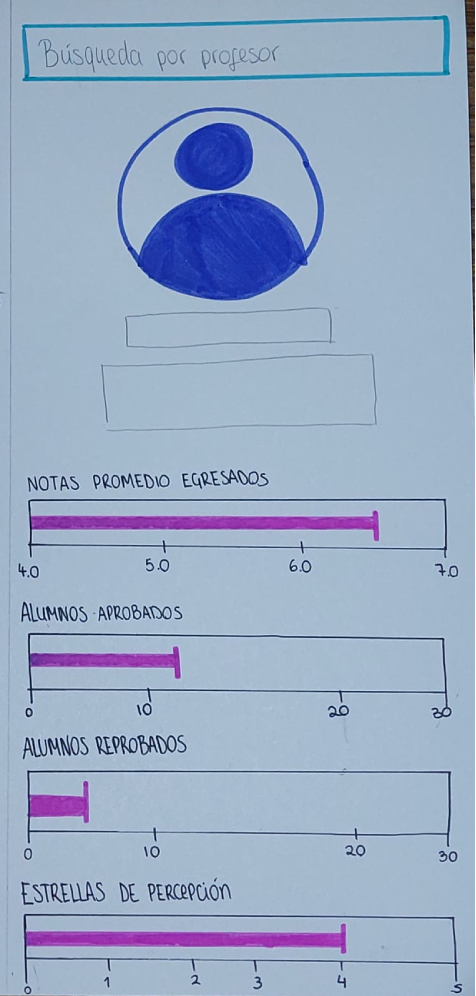 Búsqueda por profesor
NOTAS PROMEDIO EGRESADOS
4.0 5.0 6.0 7.0
ALUMNOS APROBADOS
0 10 20 30
ALUMNOS REPROBADOS
0 10 20 30
ESTRELLAS DE PERCEPCIÓN
0 1 2 3 4 5